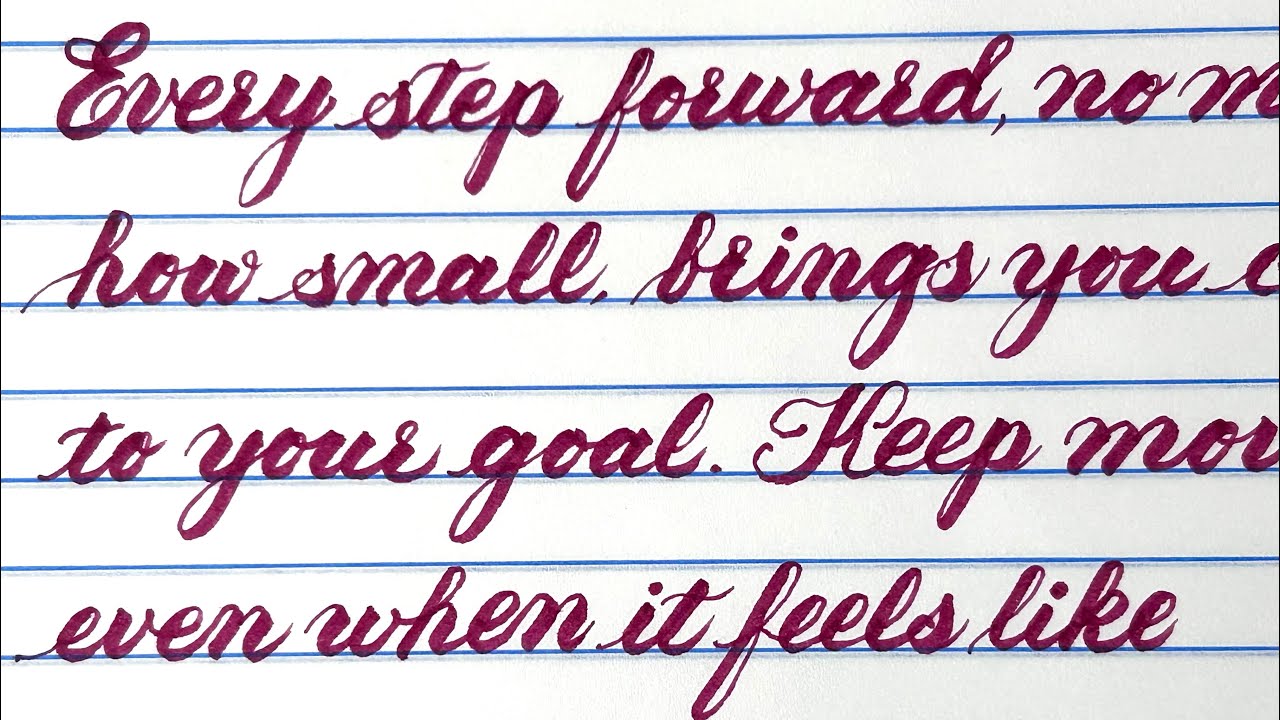 Every step forward, no m
how small, brings you c
to your goal. Keep mov
even when it feels like